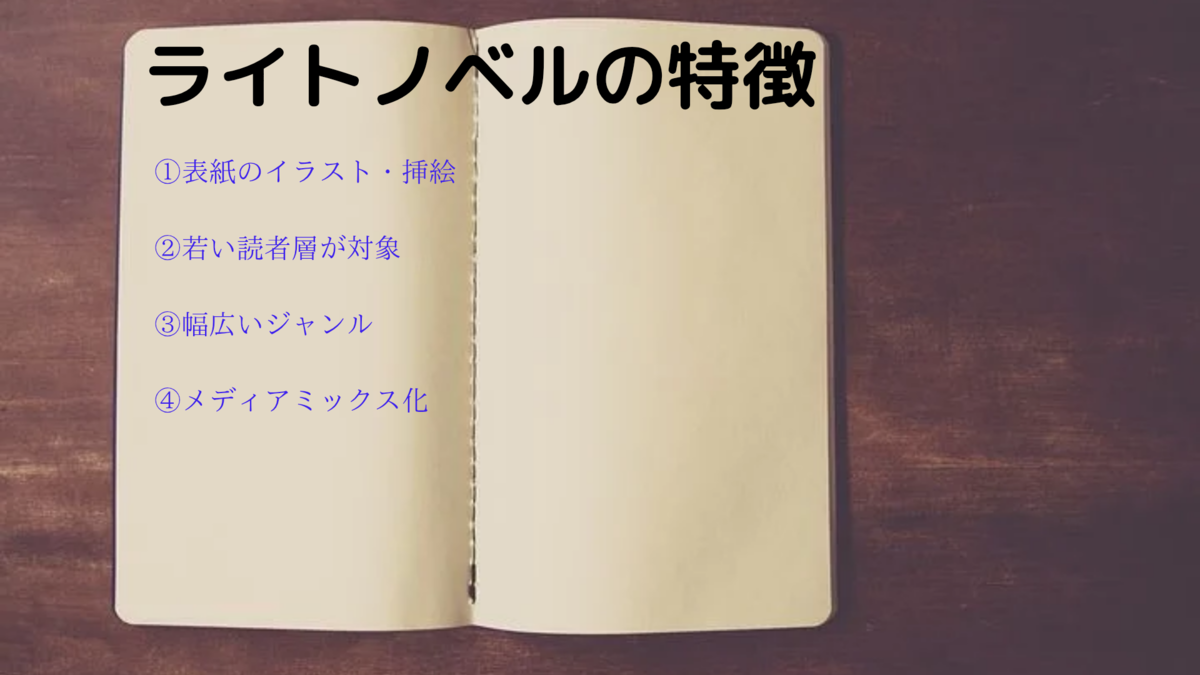 ライトノベルの特徴
①表紙のイラスト・挿絵
②若い読者層が対象
③幅広いジャンル
④メディアミックス化